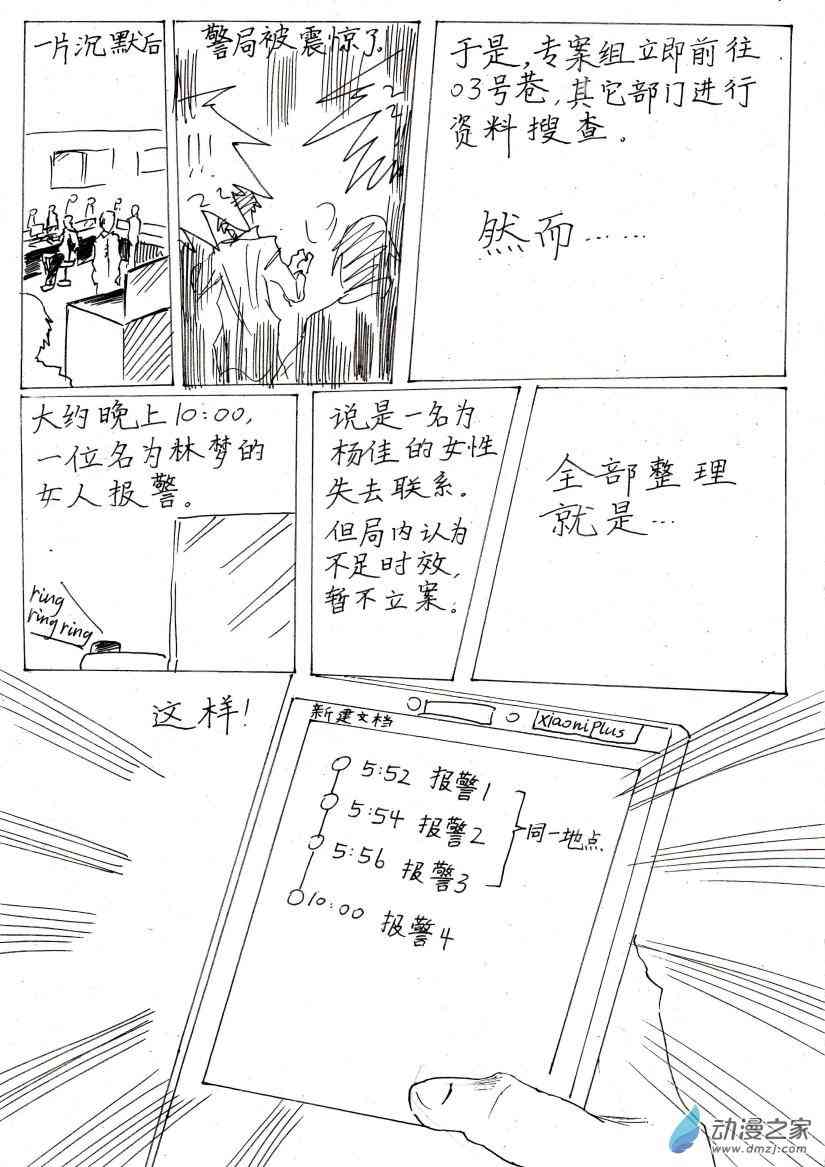 一片沉默后
警局被震惊了。
!!!
于是,专案组立即前往
03号巷,其它部门进行
资料搜查。
然而……
大约晚上10:00,
一位名为林梦的
女人报警。
ring
ring ring
说是一名为
杨佳的女性
失去联系。
但局内认为
不足时效,
暂不立案。
全部整理
就是…
这样!
新建文档
xiaoniPlus
5:52 报警1
5:54 报警2
5:56 报警3
同一地点
10:00 报警4
动漫之家
www.dmzj.com